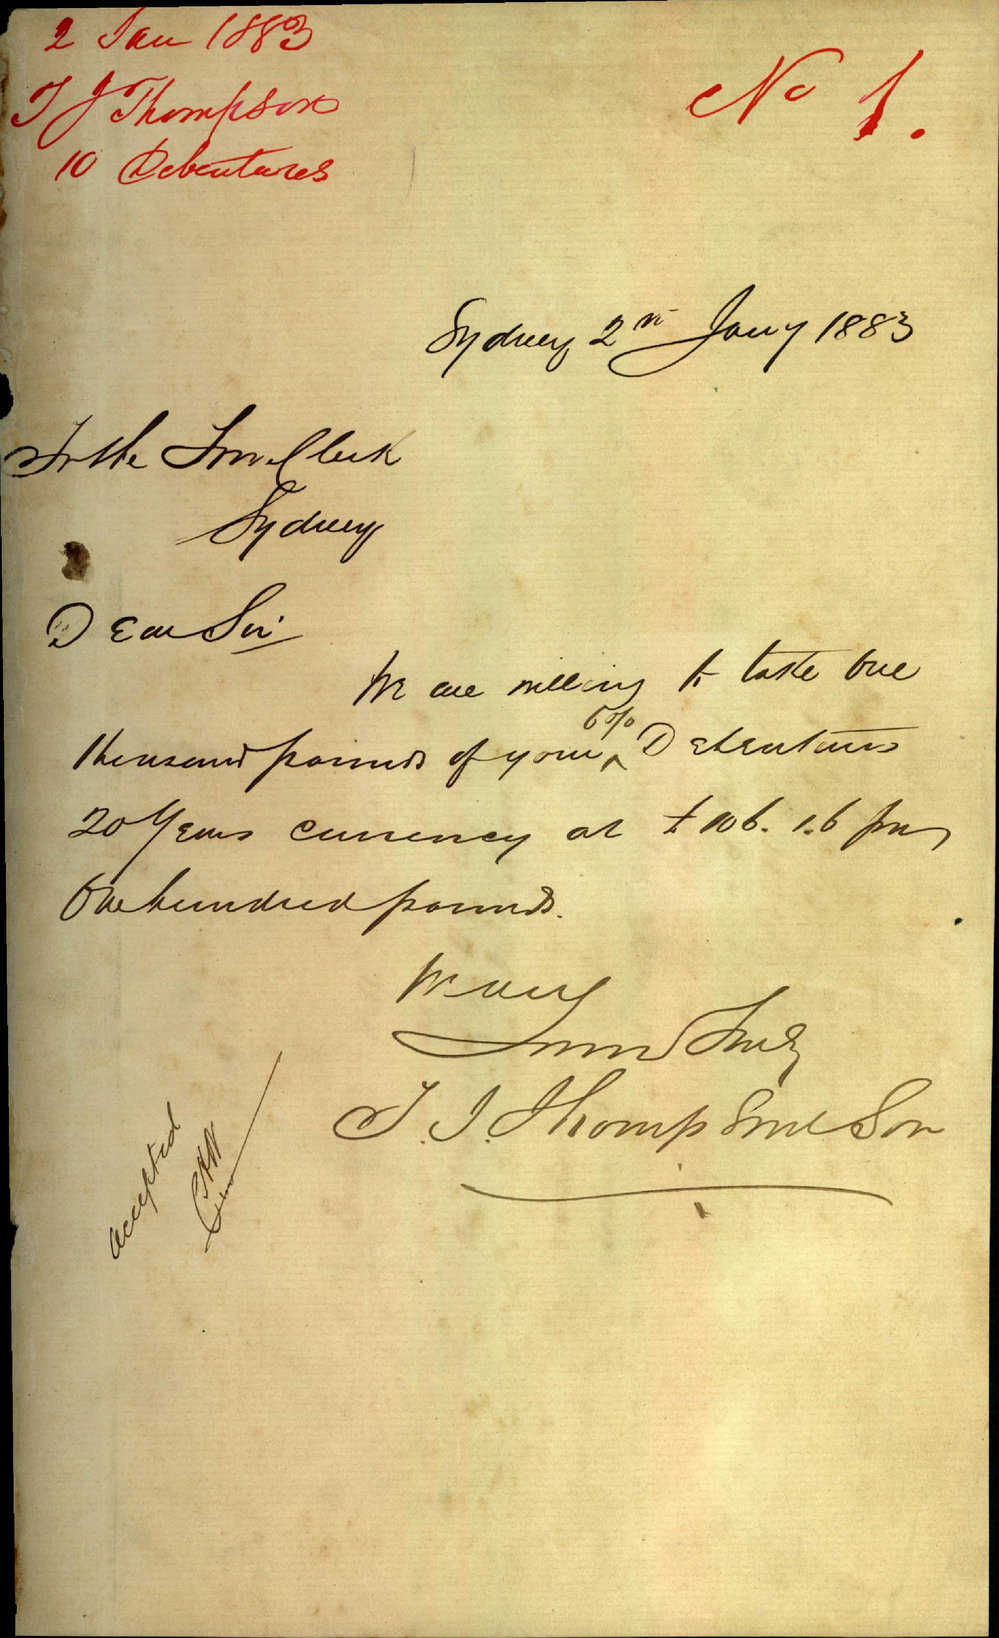 2 Jan 1883
T J Thompson
10 Debentures
No 1.
Sydney 2nd Jany 1883
To the Town Clerk
Sydney
Dear Sir
We are willing to take One
thousand pounds of your 6% Debentures
20 Years currency at £106.1.6 per
One hundred pounds.
We are
Yours Truly
T. J. Thompson & Son
accepted